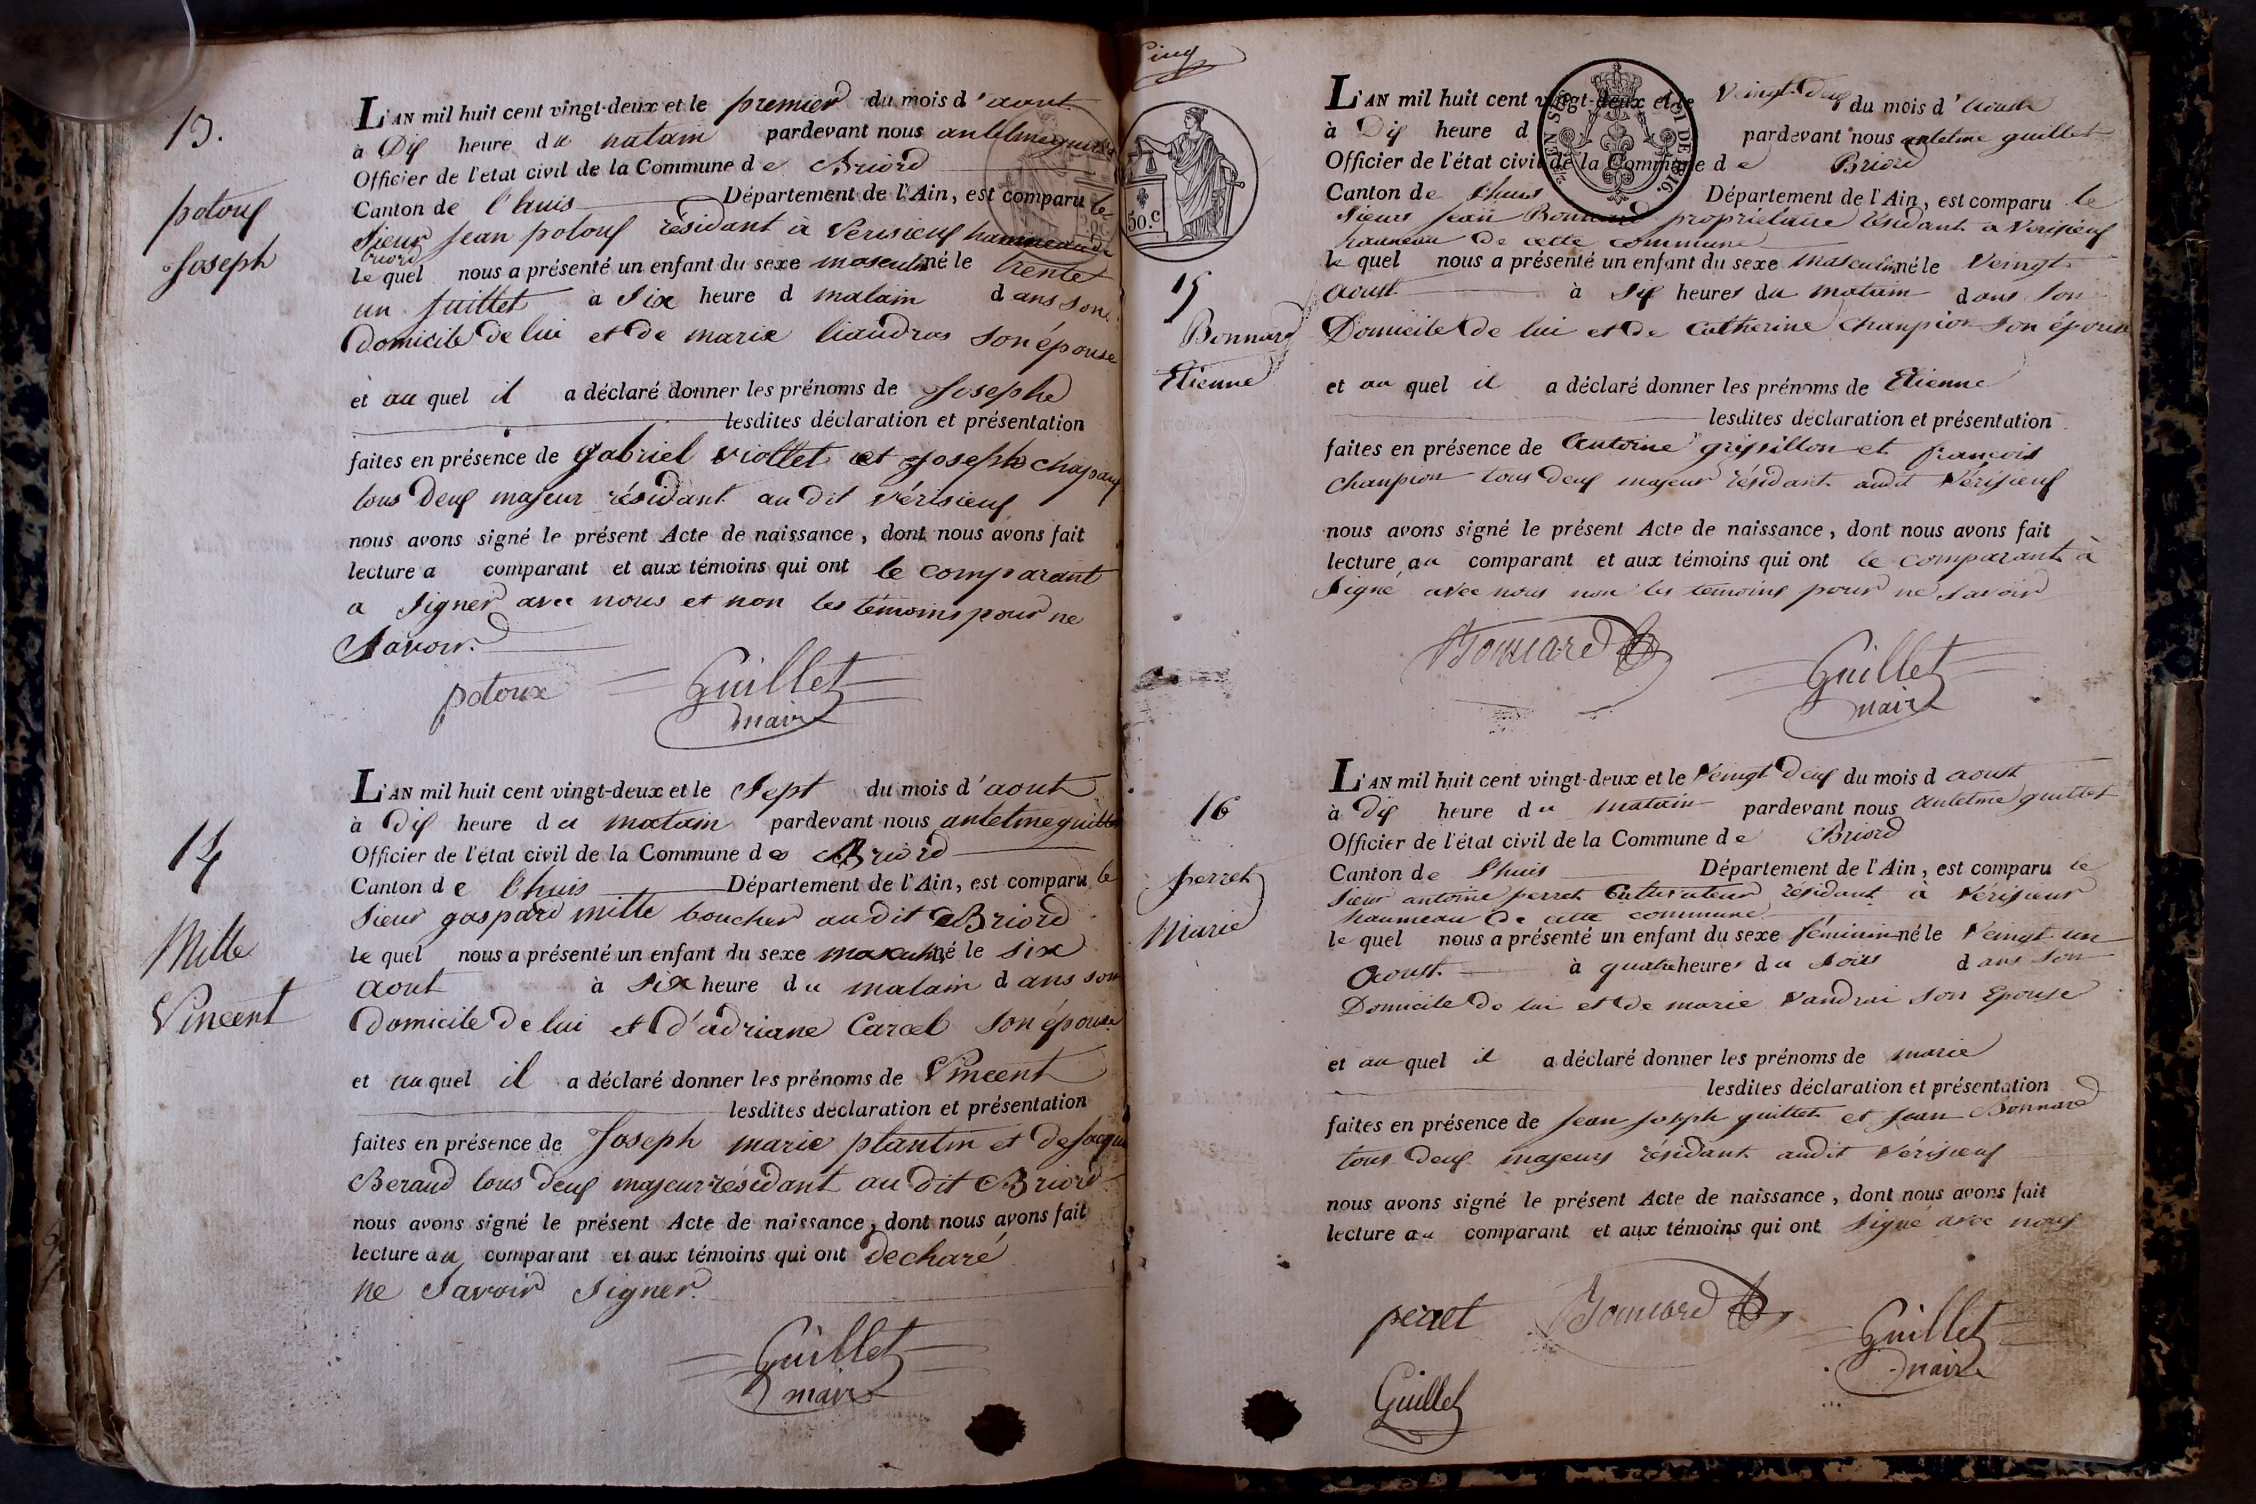 13.
potoux
Joseph
L'AN mil huit cent vingt-deux et le premier du mois d'aout
à Dix heure du matain pardevant nous antelme guillet
Officier de l'état civil de la Commune de Briord
Canton de l'huis Département de l'Ain, est comparu le
Sieur Jean potoux résidant à Vérisieux hammeau de
Briord
le quel nous a présenté un enfant du sexe masculin né le trente
un Juillet à Six heure d matain dans son
Domicile de lui et de marie liaudras son épouse
et au quel il a déclaré donner les prénoms de Joseph
lesdites déclaration et présentation
faites en présence de gabriel viollet et Joseph
tous deux majeur résidant au dit vérisieux
nous avons signé le présent Acte de naissance, dont nous avons fait
lecture a comparant et aux témoins qui ont le comparant
a Signer avec nous et non les témoins pour ne
Savoir.
potoux Guillet
maire
14
Mille
Vincent
L'AN mil huit cent vingt-deux et le Sept du mois d'aout
à Dix heure du matain pardevant nous antelme guillet
Officier de l'état civil de la Commune de Briord
Canton de l'huis Département de l'Ain, est comparu le
Sieur gaspard mille boucher au dit Briord
le quel nous a présenté un enfant du sexe masculin né le six
aout à six heure du matain dans son
Domicile de lui et d'adriane Carcel son épouse
et au quel il a déclaré donner les prénoms de Vincent
lesdites déclaration et présentation
faites en présence de Joseph marie plantin et de Jacque
Beraud tous deux majeur résidant au dit Briord
nous avons signé le présent Acte de naissance, dont nous avons fait
lecture au comparant et aux témoins qui ont decharé
ne Savoir Signer.
Guillet
maire
Cinq
50.c
15
Bonnard
Etienne
L'AN mil huit cent vingt-deux et le Veingt-Deux du mois d'Aoust
à Dix heure d pardevant nous antelme guillet
Officier de l'état civil de la Commune de Briord
Canton de l'huis Département de l'Ain, est comparu le
Sieur Jean Bonnard propriétaire résidant à Vérisieux
hauneau de cette commune
le quel nous a présenté un enfant du sexe masculin né le Veingt
Aoust à Six heures du matain dans Son
Domicile de lui et de Catherine Champion Son épouse
et au quel il a déclaré donner les prénoms de Etienne
lesdites déclaration et présentation
faites en présence de Antoine grissillon et françois
champion tous deux majeur résidant audit Vérisieux
nous avons signé le présent Acte de naissance, dont nous avons fait
lecture au comparant et aux témoins qui ont le comparant à
Signé avec nous non les témoins pour ne Savoir
Bonnard Guillet
maire
16
perret
Marie
L'AN mil huit cent vingt-deux et le Veingt Deux du mois d aoust
à dix heure du matain pardevant nous antelme guillet
Officier de l'état civil de la Commune de Briord
Canton de l'huis Département de l'Ain, est comparu le
Sieur antoine perret Cultivateur résidant à Vérisieux
haumeau de cette commune
le quel nous a présenté un enfant du sexe féminin né le Veingt un
Aoust à quatre heures du Soir dans Son
Domicile de lui et de marie Vandrai Son Epouse
et au quel il a déclaré donner les prénoms de marie
lesdites déclaration et présentation
faites en présence de Jean Joseph guillet et Jean Bonnard
tous deux majeurs résidant audit Vérisieux
nous avons signé le présent Acte de naissance, dont nous avons fait
lecture au comparant et aux témoins qui ont Signé avec nous
perret Bonnard Guillet
maire
Guillet